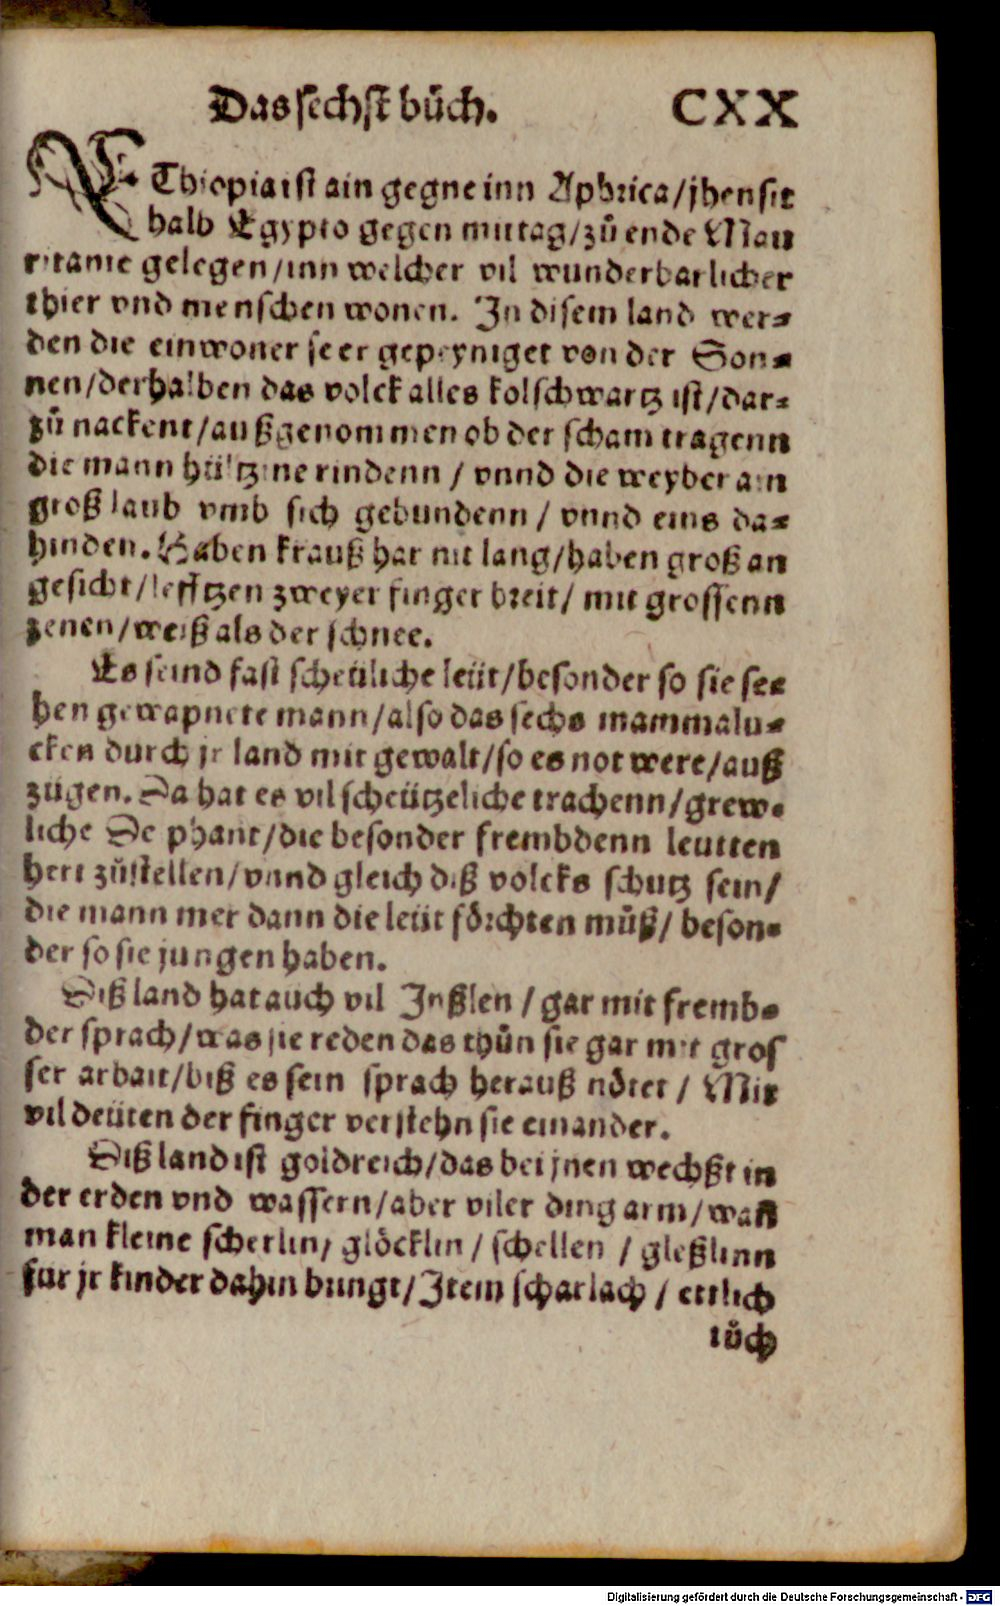 Das sechst bůch. CXX
EThiopia ist ain gegne inn Aphrica/jhensit
halb Egypto gegen mittag/zů ende Mau
ritanie gelegen/inn welcher vil wunderbarlicher
thier vnd menschen wonen. In disem land wer⸗
den die einwoner seer gepeyniget von der Son⸗
nen/derhalben das volck alles kolschwartz ist/dar⸗
zů nackent/außgenommen ob der scham tragenn
die mann hültzene rindenn / vnnd die weyber ain
groß laub vmb sich gebundenn / vnnd eins da⸗
hinden. Haben krauß har nit lang/haben groß an
gesicht/lefftzen zweyer finger breit/ mit grossenn
zenen/weiß als der schnee.
Es seind fast scheüliche leüt/besonder so sie se⸗
hen gewapnete mann/also das sechs mammalu⸗
cken durch jr land mit gewalt/so es not were/auß
zügen. Da hat es vil scheützeliche trachenn/grew⸗
liche De phant/die besonder frembdenn leutten
hert zůstellen/vnnd gleich diß volcks schutz sein/
die mann mer dann die leüt förchten můß/ beson⸗
der so sie jungen haben.
Diß land hat auch vil Inßlen / gar mit fremb⸗
der sprach/was sie reden das thůn sie gar mit gros
ser arbait/biß es sein sprach herauß nötet / Mit
vil deüten der finger verstehn sie einander.
Diß land ist goldreich/das bei jnen wechßt in
der erden vnd wassern/aber viler ding arm/wañ
man kleine scherlin/ glöcklin / schellen / gleßlinn
für jr kinder dahin bringt/Item scharlach / ettlich
tůch
Digitalisierung gefördert durch die Deutsche Forschungsgemeinschaft - DFG